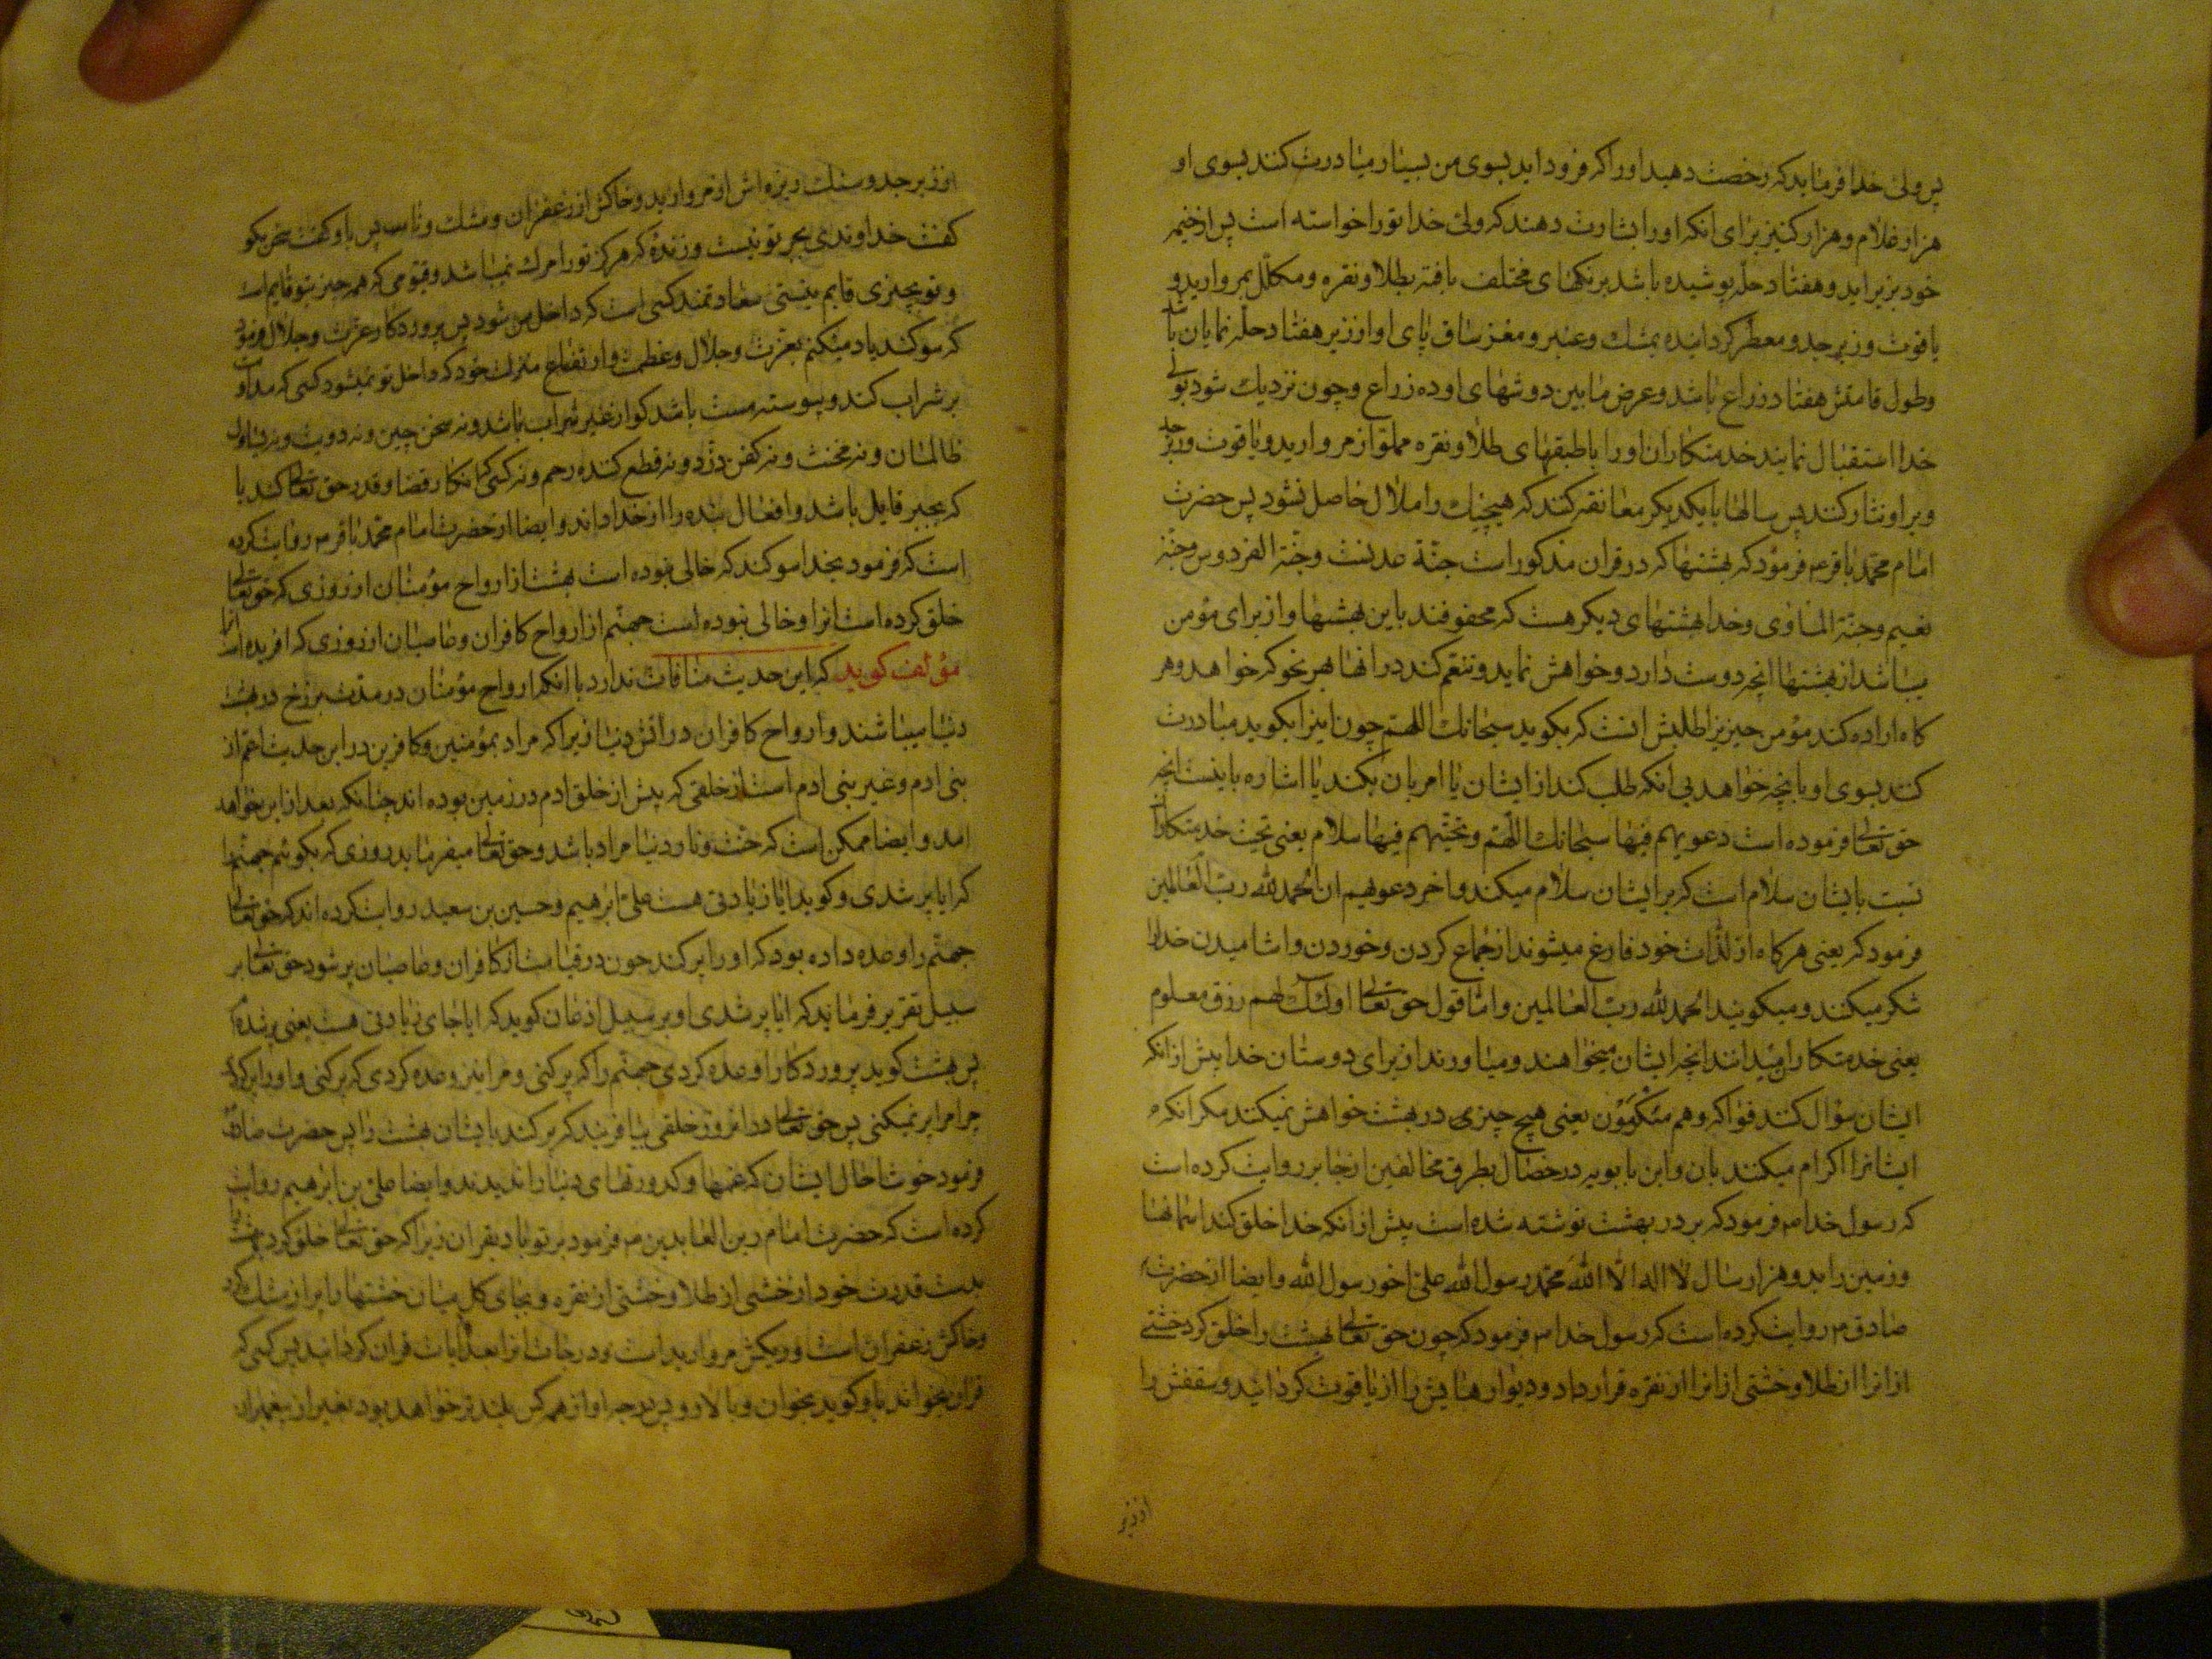 پس ولی خدا فرماید که رخصت دهید او را که فرود اید بسوی من بسیار مبادرت کنند بسوی او
هزار غلام و هزار کنیز برای انکه او را بشارت دهند که ولی خدا تو را خواسته است پس از خیمه
خود بزیر اید و هفتاد حله پوشیده باشد برنکهای مختلف بافته بطلا و نقره و مکلل بمروارید و
یاقوت و زبرجد و معطر کردانیده بمشک و عنبر و مغز ساق پای او از زیر هفتاد حله نمایان باشد
و طول قامتش هفتاد زراع باشد و عرض مابین دوشهای او ده زراع و چون نزدیک شود بولی
خدا استقبال نمایند خدمتکاران او را با طبقهای طلا و نقره مملو از مروارید و یاقوت و زبرجد
و بر او نثار کنند پس سالها با یکدیکر معانقه کنند که هیچیک را ملال حاصل نشود پس حضرت
امام محمد باقر ع فرمود که بهشتها که در قران مذکور است جنّة عدنست و جنّة الفردوس و جنّة
نعیم و جنّة الماوی و خدا بهشتهای دیکر هست که محفوفند باین بهشتها و از برای مؤمن
میباشد از بهشتها انچه دوست دارد و خواهش نماید و تنعم کند در انها بهر نحو که خواهد و هر
کاه اراده کند مؤمن چیزیرا طلبش انست که بکوید سبحانک اللهم چون اینرا بکوید مبادرت
کنند بسوی او بانچه خواهد بی انکه طلب کند از ایشان یا امر بان بکند یا اشاره باینست انچه
حق تعالی فرموده است دعویهم فیها سبحانک اللّهم و تحیّتهم فیها سلام یعنی تحیت خدمتکاران
نسبت بایشان سلام است که بر ایشان سلام میکنند و اخر دعویهم ان الحمد لله ربّ العالمین
فرمود که یعنی هرکاه از لذّات خود فارغ میشوند از جماع کردن و خوردن و اشامیدن خدا را
شکر میکنند و میکویند الحمد لله ربّ العالمین و امّا قول حق تعالی اولئک لهم رزق معلوم
یعنی خدمتکاران میدانند انچه ایشان میخواهند و میاورند از برای دوستان خدا پیش از انکه
ایشان سؤال کنند فواکه و هم مُکْرَمُون یعنی هیچ چیزی در بهشت خواهش نمیکنند مکر انکه
ایشانرا اکرام میکنند بان و ابن بابویه در خصال بطرق مخالفین از جابر روایت کرده است
که رسول خدا ص فرمود که بر در بهشت نوشته شده است پیش از انکه خدا خلق کند اسمانها
و زمین را بدو هزار سال لا اله الّا الله محمّد رسول الله علیّ اخو رسول الله و ایضا از حضرت
صادق ع روایت کرده است که رسول خدا ص فرمود که چون حق تعالی بهشت را خلق کرد خشتی
از انرا از طلا و خشتی از انرا از نقره قرار داد و دیوارهایش را از یاقوت کردانید و سقفش را
از زبر
از زبرجد و سنک ریزه اش از مروارید و خاکش از زعفران و مشک پس باو کفت سخن بکو
کفت خداوندی بجز تو نیست و زندهٔ که هرکز تو را مرک نمیباشد و قیّومی که همه چیز بتو قایم است
و تو بچیزی قایم نیستی سعادتمند کسی است که داخل من شود پس پروردکار عزت و جلال فرمود
که سوکند یاد میکنم بعزت و جلال و عظمت و ارتفاع منزلت خود که داخل تو نمیشود کسی که مداومت
بر شراب کند و پیوسته مست باشد کو از غیر شراب باشد و نه سخن چین و نه دیوث و نه
ظالمان و نه مخنث و نه کفن دزد و نه قطع کننده رحم و نه کسی که انکار قضا و قدر حق تعالی کند یا
که بجبر قایل باشد و افعال بنده را از خدا داند و ایضا از حضرت امام محمّد باقر ع روایت کرده
است که فرمود بخدا سوکند که خالی نبوده است بهشت از ارواح مؤمنان از روزی که حق تعالی
خلق کرده است انرا و خالی نبوده است جهنّم از ارواح کافران و عاصیان از روزی که افریده است انرا
مؤلف کوید که این حدیث منافات ندارد با انکه ارواح مؤمنان در مدت برزخ در بهشت
دنیا میباشند و ارواح کافران در اتش دنیا زیرا که مراد بمؤمنین و کافرین در این حدیث اعم از
بنی ادم و غیر بنی ادم است از خلقی که پیش از خلق ادم در زمین بوده اند چنانکه بعد از این خواهد
امد و ایضا ممکن است که جنت و نار دنیا مراد باشد و حق تعالی میفرماید روزی که بکوئیم جهنّم را
که ایا پر شدی و کوید ایا زیادتی هست علی ابرهیم و حسین بن سعید روایت کرده اند که حق تعالی
جهنّم را وعده داده بود که او را پر کند چون در قیامت از کافران و عاصیان پر شود حق تعالی بر
سبیل تقریر فرماید که ایا پر شدی او بر سبیل اذعان کوید که ایا جای زیادتی هست یعنی پر شده ام
پس بهشت کوید پروردکارا وعده کردی جهنّم را که پر کنی و مرا نیز وعده کردی که پر کنی و او را پر کردی
چرا مرا پر نمیکنی پس حق تعالی در انروز خلقی بیافریند که پر کند بایشان بهشت را پس حضرت صادق ع
فرمود خوشا حال ایشان که غمها و کدورتهای دنیا را ندیدند و ایضا علی بن ابرهیم روایت
کرده است که حضرت امام زین العابدین ع فرمود بر تو باد بقران زیرا که حق تعالی خلق کرد بهشت را
بدست قدرت خود از خشتی از طلا و خشتی از نقره و بجای کل میان خشتها را پر از مشک کرد
و خاکش زعفران است و ریکش مروارید است و درجات انرا بعدد ایات قران کردانید پس کسی که
قران بخواند باو کوید بخوان و بالا رو پس درجه او از همه کس بلند تر خواهد بود بغیر از پیغمبران